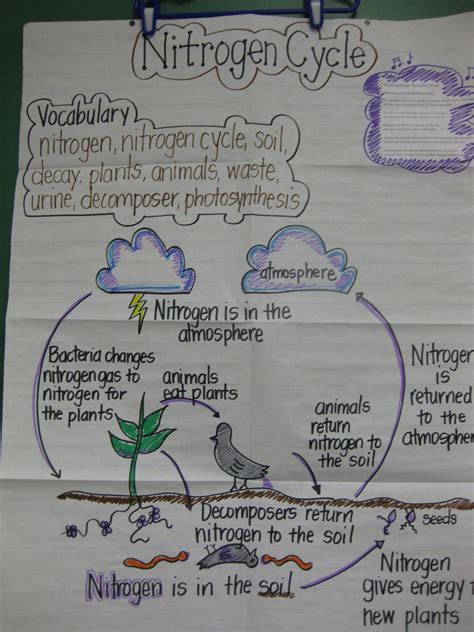 Nitrogen Cycle
Vocabulary
nitrogen, nitrogen cycle, soil,
decay, plants, animals, waste,
urine, decomposer, photosynthesis
atmosphere
Nitrogen is in the
atmosphere
Bacteria changes
nitrogen gas to
nitrogen for
the plants
animals
eat plants
animals
return
nitrogen to
the soil
Nitrogen
is
returned
to the
atmosphere
Decomposers return
nitrogen to the soil
seeds
Nitrogen is in the soil
Nitrogen
gives energy
new plants